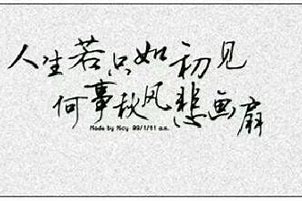 人生若只如初见
何事秋风悲画扇
Made by May 99/1/11 a.m.